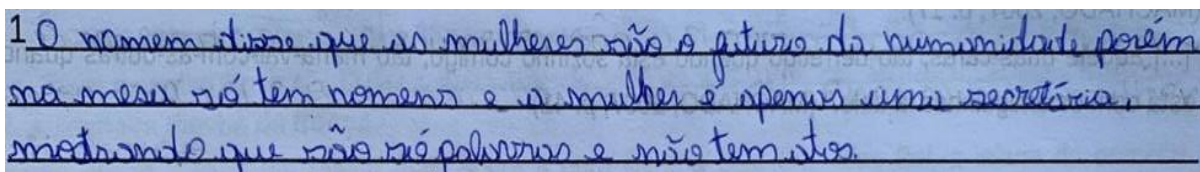 1 O homem disse que as mulheres são o futuro da humanidade porém
na mesa só tem homens e a mulher é apenas uma secretária,
mostrando que são só palavras e não tem atos.